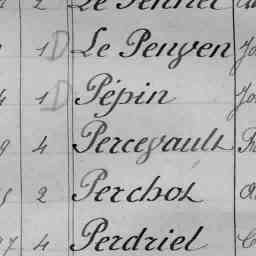 2 Le Pennec
1 D Le Penven Jo
4 1 D Pépin Jo
9 4 Percevault
2 Perchot
97 4 Perdriel